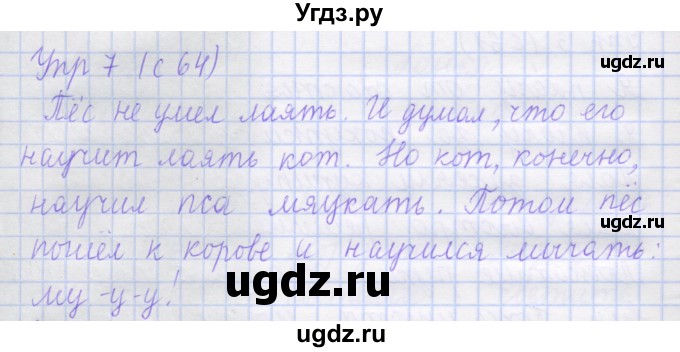 Угдз.ру
ugdz.ru
Упр 7 (с 64)
ugdz.ru
Пёс не умел лаять. И думал, что его
научит лаять кот. Но кот, конечно,
научил пса мяукать. Потом пёс
пошёл к корове и научился мычать:
ugdz.ru
му-у-у!
ugdz.ru
ugdz.ru